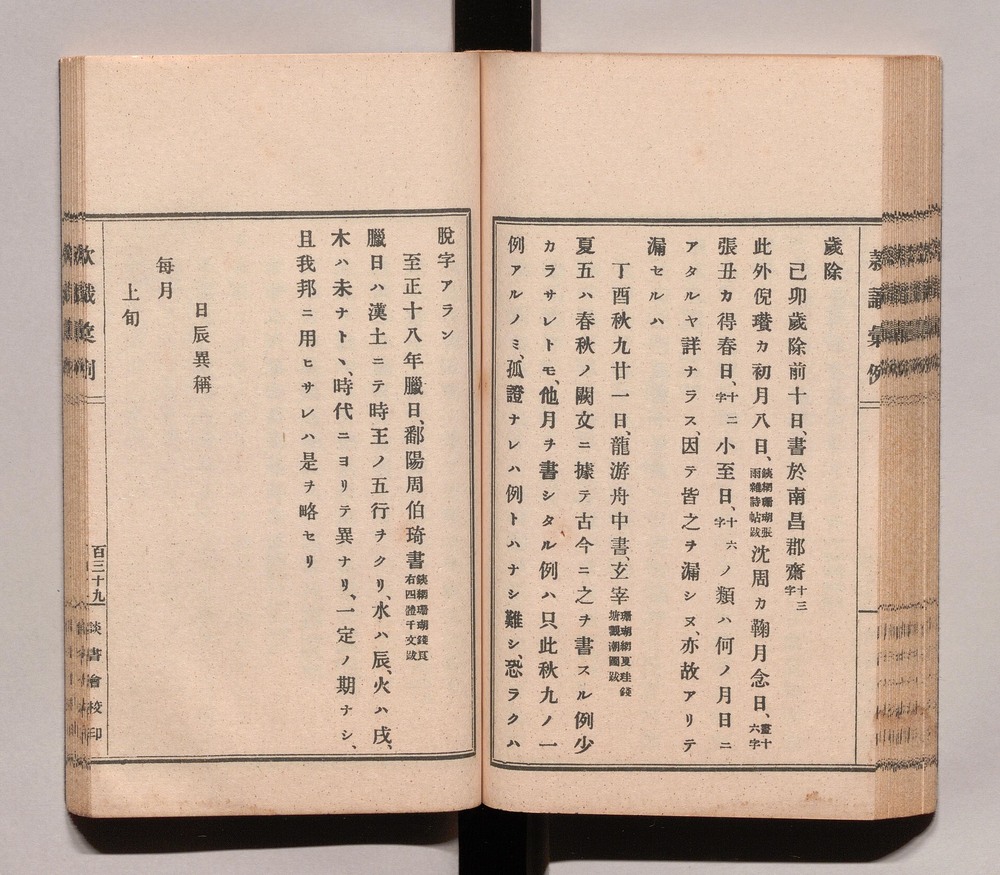 歲除
己卯歲除前十日、書於南昌郡齋十三字
此外倪瓚カ初月八日、鐵網珊瑚張雨雜詩帖跋沈周カ鞠月念日、畫十六字
張丑カ得春日、十二字小至日、十六字ノ類ハ何ノ月日ニ
アタルヤ詳ナラス、因テ皆之ヲ漏シヌ、亦故アリテ
漏セルハ
丁酉秋九廿一日、龍游舟中書、玄宰珊瑚網夏珪錢塘觀潮圖跋
夏五ハ春秋ノ闕文ニ據テ古今ニ之ヲ書スル例少
カラサレトモ、他月ヲ書シタル例ハ只此秋九ノ一
例アルノミ、孤證ナレハ例トハナシ難シ、恐ラクハ
脫字アラン
至正十八年臘日、鄱陽周伯琦書鐵網珊瑚錢良右四體千文跋
臘日ハ漢土ニテ時王ノ五行ヲクリ、水ハ辰、火ハ戌、
木ハ未ナトヽ、時代ニヨリテ異ナリ、一定ノ期ナシ、
且我邦ニ用ヒサレハ是ヲ略セリ
日辰異稱
每月
上旬
百三十九
談書會校印